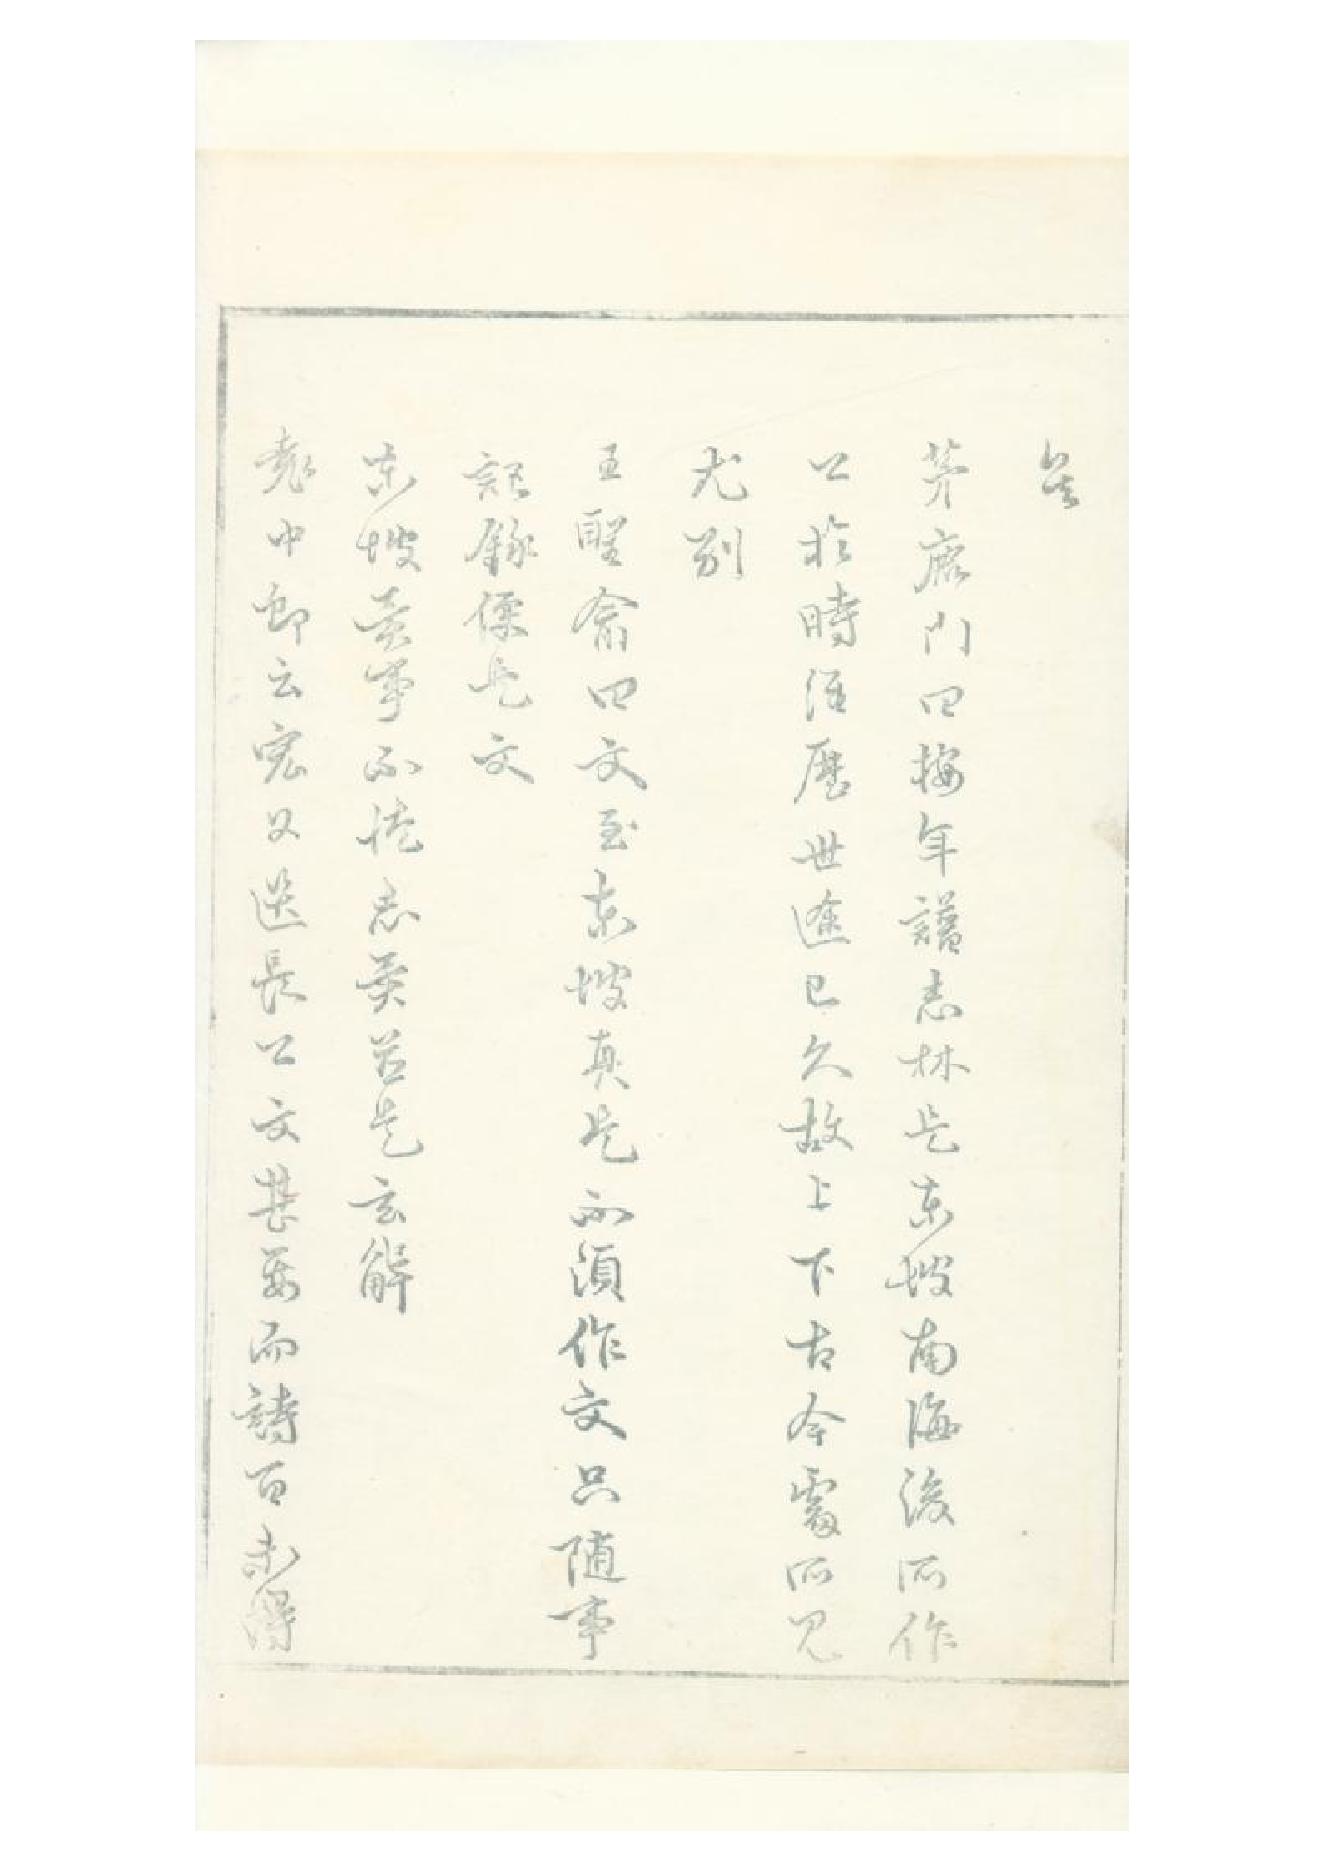 矣
茅鹿門曰按年譜志林是東坡南海後所作
公於時涉歷世途已久故上下古今處所見
尤別
王聖俞曰文至東坡真是不須作文只隨事
記錄便是文
東坡事不忘是玄解
袁中郎云宏又選長公文甚而詩百未得